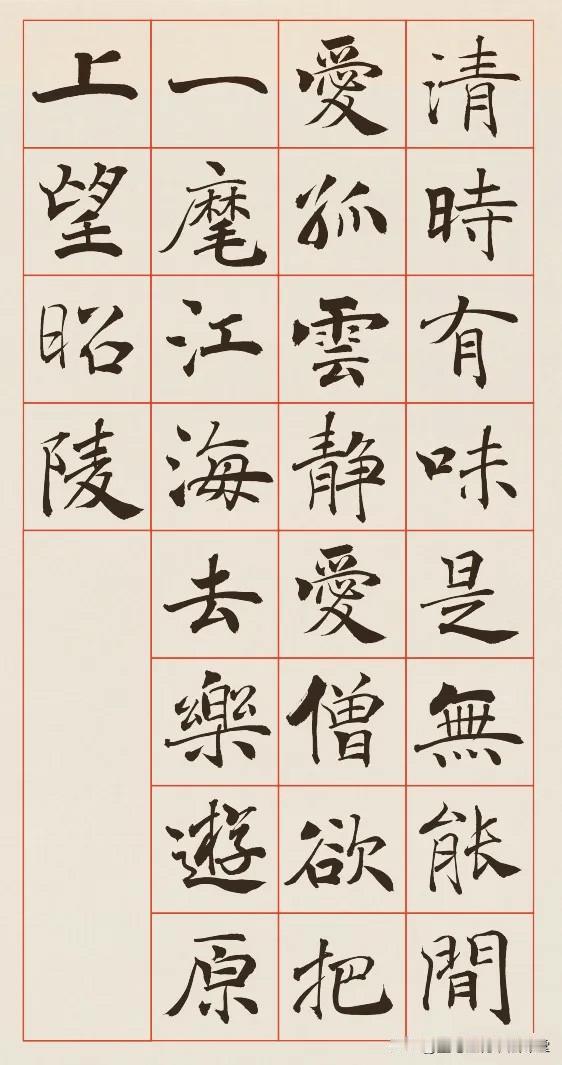 清時有味是無能間
愛孤雲静愛僧欲把
一麾江海去樂遊原
上望昭陵